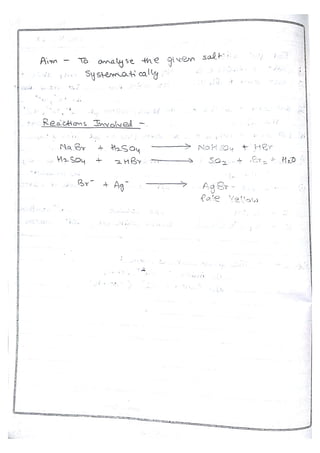 Aim - To analyse the given salt
Systematically
Reactions Involved -
NaBr + H2SO4 → NaHSO4 + HBr
H2SO4 + 2HBr → SO2 + Br2 + H2O
Br⁻ + Ag⁻ → AgBr
Pale Yellow